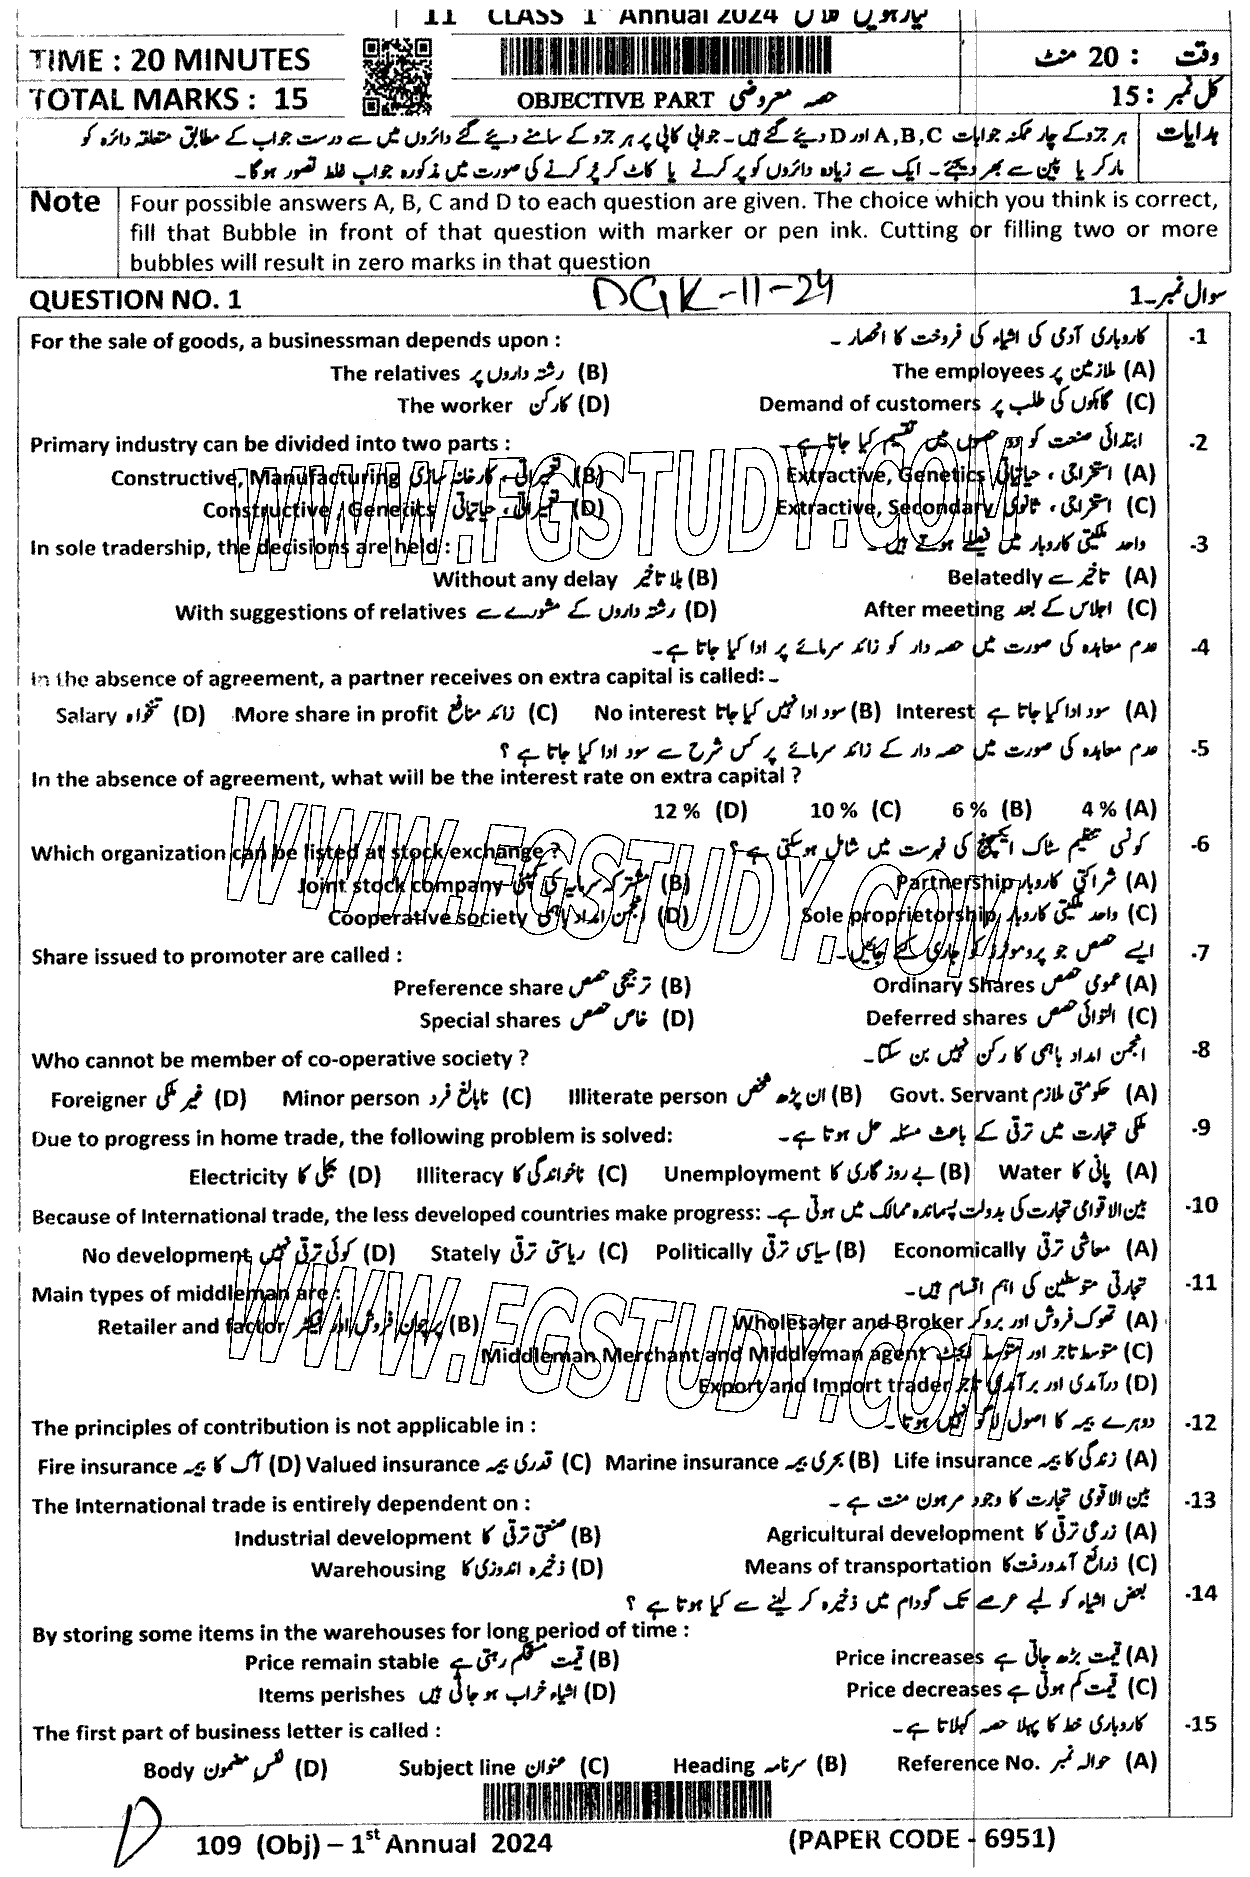 11 CLASS 1st Annual 2024 گیارہویں کلاس
TIME : 20 MINUTES وقت : 20 منٹ
TOTAL MARKS : 15 OBJECTIVE PART حصہ معروضی کل نمبر : 15
ہدایات ہر جزو کے چار ممکنہ جوابات A,B,C اور D دیئے گئے ہیں۔ جوابی کاپی پر ہر جزو کے سامنے دیئے گئے دائروں میں سے درست جواب کے مطابق متعلقہ دائرہ کو
مارکر یا پین سے بھر دیجئے۔ ایک سے زیادہ دائروں کو پُر کرنے یا کاٹ کر پُر کرنے کی صورت میں مذکورہ جواب غلط تصور ہوگا۔
Note Four possible answers A, B, C and D to each question are given. The choice which you think is correct,
fill that Bubble in front of that question with marker or pen ink. Cutting or filling two or more
bubbles will result in zero marks in that question
QUESTION NO. 1 DGK-11-24 سوال نمبر۔1
For the sale of goods, a businessman depends upon : کاروباری آدمی کی اشیاء کی فروخت کا انحصار ۔ -1
The relatives رشتہ داروں پر (B) The employees ملازمین پر (A)
The worker کارکن (D) Demand of customers گاہکوں کی طلب پر (C)
Primary industry can be divided into two parts : ابتدائی صنعت کو دو حصوں میں تقسیم کیا جاتا ہے۔ -2
Constructive, Manufacturing تعمیراتی، کارخانہ سازی (B) Extractive, Genetics استخراجی ، حیاتیاتی (A)
Constructive, Genetics تعمیراتی، حیاتیاتی (D) Extractive, Secondary استخراجی ، ثانوی (C)
In sole tradership, the decisions are held : واحد ملکیتی کاروبار میں فیصلے ہوتے ہیں۔ -3
Without any delay بلا تاخیر (B) Belatedly تاخیر سے (A)
With suggestions of relatives رشتہ داروں کے مشورے سے (D) After meeting اجلاس کے بعد (C)
عدم معاہدہ کی صورت میں حصہ دار کو زائد سرمائے پر ادا کیا جاتا ہے۔ -4
In the absence of agreement, a partner receives on extra capital is called:-
Salary تنخواہ (D) More share in profit زائد منافع (C) No interest سود ادا نہیں کیا جاتا (B) Interest سود ادا کیا جاتا ہے (A)
عدم معاہدہ کی صورت میں حصہ دار کے زائد سرمائے پر کس شرح سے سود ادا کیا جاتا ہے ؟ -5
In the absence of agreement, what will be the interest rate on extra capital ?
12 % (D) 10 % (C) 6 % (B) 4 % (A)
Which organization can be listed at stock exchange ? کونسی تنظیم سٹاک ایکسچینج کی فہرست میں شامل ہوسکتی ہے؟ -6
Joint stock company مشترکہ سرمایہ کی کمپنی (B) Partnership شراکتی کاروبار (A)
Cooperative society انجمن امداد باہمی (D) Sole proprietorship واحد ملکیتی کاروبار (C)
Share issued to promoter are called : ایسے حصص جو پروموٹرز کو جاری کئے جائیں۔ -7
Preference share ترجیحی حصص (B) Ordinary Shares عمومی حصص (A)
Special shares خاص حصص (D) Deferred shares التوائی حصص (C)
Who cannot be member of co-operative society ? انجمن امداد باہمی کا رکن نہیں بن سکتا۔ -8
Foreigner غیر ملکی (D) Minor person نابالغ فرد (C) Illiterate person ان پڑھ شخص (B) Govt. Servant حکومتی ملازم (A)
Due to progress in home trade, the following problem is solved: ملکی تجارت میں ترقی کے باعث مسئلہ حل ہوتا ہے۔ -9
Electricity بجلی کا (D) Illiteracy ناخواندگی کا (C) Unemployment بے روزگاری کا (B) Water پانی کا (A)
Because of International trade, the less developed countries make progress: بین الاقوامی تجارت کی بدولت پسماندہ ممالک میں ہوتی ہے۔ -10
No development کوئی ترقی نہیں (D) Stately ریاستی ترقی (C) Politically سیاسی ترقی (B) Economically معاشی ترقی (A)
Main types of middleman are : تجارتی متوسطین کی اہم اقسام ہیں۔ -11
Retailer and factor پرچون فروش اور فیکٹر (B) Wholesaler and Broker تھوک فروش اور بروکر (A)
Middleman Merchant and Middleman agent متوسط تاجر اور متوسط ایجنٹ (C)
Export and Import trader درآمدی اور برآمدی تاجر (D)
The principles of contribution is not applicable in : دوہرے بیمہ کا اصول لاگو نہیں ہوتا۔ -12
Fire insurance آگ کا بیمہ (D) Valued insurance قدری بیمہ (C) Marine insurance بحری بیمہ (B) Life insurance زندگی کا بیمہ (A)
The International trade is entirely dependent on : بین الاقوی تجارت کا وجود مرہون منت ہے ۔ -13
Industrial development صنعتی ترقی کا (B) Agricultural development زرعی ترقی کا (A)
Warehousing ذخیرہ اندوزی کا (D) Means of transportation ذرائع آمدورفت کا (C)
بعض اشیاء کو لمبے عرصے تک گودام میں ذخیرہ کر لینے سے کیا ہوتا ہے ؟ -14
By storing some items in the warehouses for long period of time :
Price remain stable قیمت مستحکم رہتی ہے (B) Price increases قیمت بڑھ جاتی ہے (A)
Items perishes اشیاء خراب ہو جاتی ہیں (D) Price decreases قیمت کم ہوتی ہے (C)
The first part of business letter is called : کاروباری خط کا پہلا حصہ کہلاتا ہے۔ -15
Body نفس مضمون (D) Subject line عنوان (C) Heading سرنامہ (B) Reference No. حوالہ نمبر (A)
109 (Obj) – 1st Annual 2024 (PAPER CODE - 6951)
WWW.FGSTUDY.COM
WWW.FGSTUDY.COM
WWW.FGSTUDY.COM